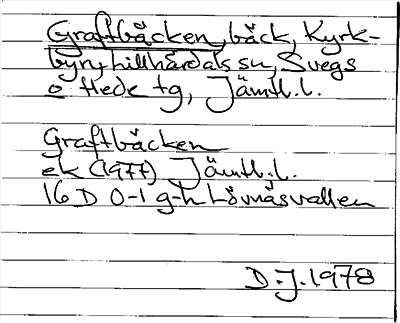 Graftbäcken, bäck, Kyrk-
byn, hillhärdals sn, Svegs
o Hede tg, Jämtl.l.
Graftbäcken
ek (1977) Jämtl.l.
16 D 0-1 g-h Lövnäsvallen
D.J. 1978